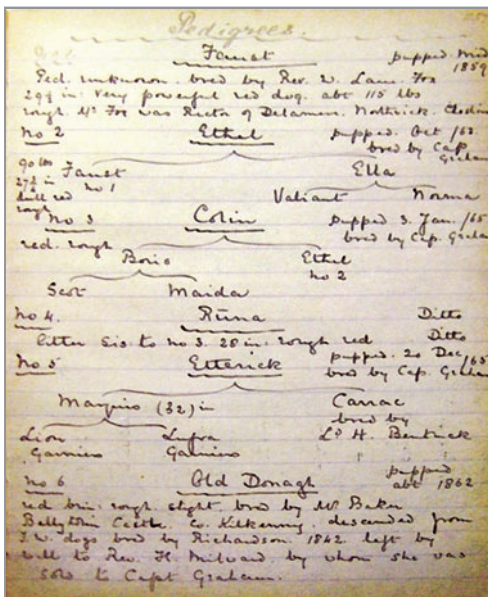 Pedigrees.
257
Faust pupped Mid
1859
Ped. unknown. bred by Rev. W. Lane. Fox
29½ in. Very powerful red dog. abt 115 lbs
rough. Mr Fox was Rector of Delamere. Northwick.
No 2 Ethel pupped. Oct /63
bred by Cap. Graham
90 lbs Faust Ella
27½ in No 1
dull red Valiant Norma
rough
No 3 Colin pupped 3. Jan. /65
red. rough bred by Cap. Graham
Boris Ethel
No 2
Scot Maida
No 4. Runa Ditto
litter sis to No 3. 28 in. rough red Ditto
No 5 Etterick pupped. 20 Dec /65
bred by Cap. Graham
Marquis (32) in Carrac
bred by
Lion Lufra Ld H. Bentinck
Garnier Garnier " " "
No 6 Old Donagh pupped
abt 1862
red brin. rough. slight. bred by Mr Baker
Ballytobin Castle. Co. Kilkenny. descended from
I. W. dogs bred by Richardson. 1842 left by
will to Rev. H. Milward. by whom she was
sold to Capt Graham.